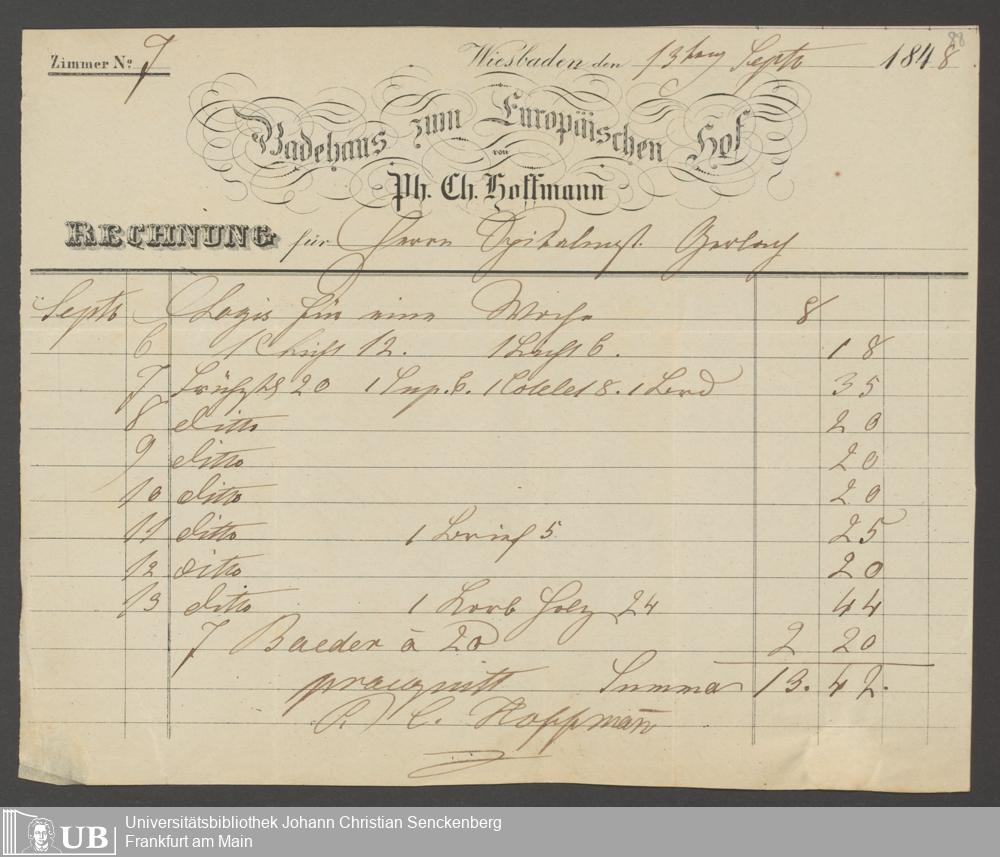 Zimmer No. 7
Wiesbaden den 13ten Septb 1848
88
Badehaus zum Europäischen Hof
von
Ph. Ch. Hoffmann
RECHNUNG für Herrn Spitalmst. Gerlach
Septb Logis für eine Woche 8
6 12. 1 Licht 6. 18
7 Frühst 20 1 Sup. 6. 1 Cotelet 8. 1 Brd 35
8 ditto 20
9 ditto 20
10 ditto 20
11 ditto 1 Brief 5 25
12 ditto 20
13 ditto 1 Korb Holz 24 44
7 Baeder à 20 2 20
Summa 13. 42.
C. Hoffmañ
UB
Universitätsbibliothek Johann Christian Senckenberg
Frankfurt am Main